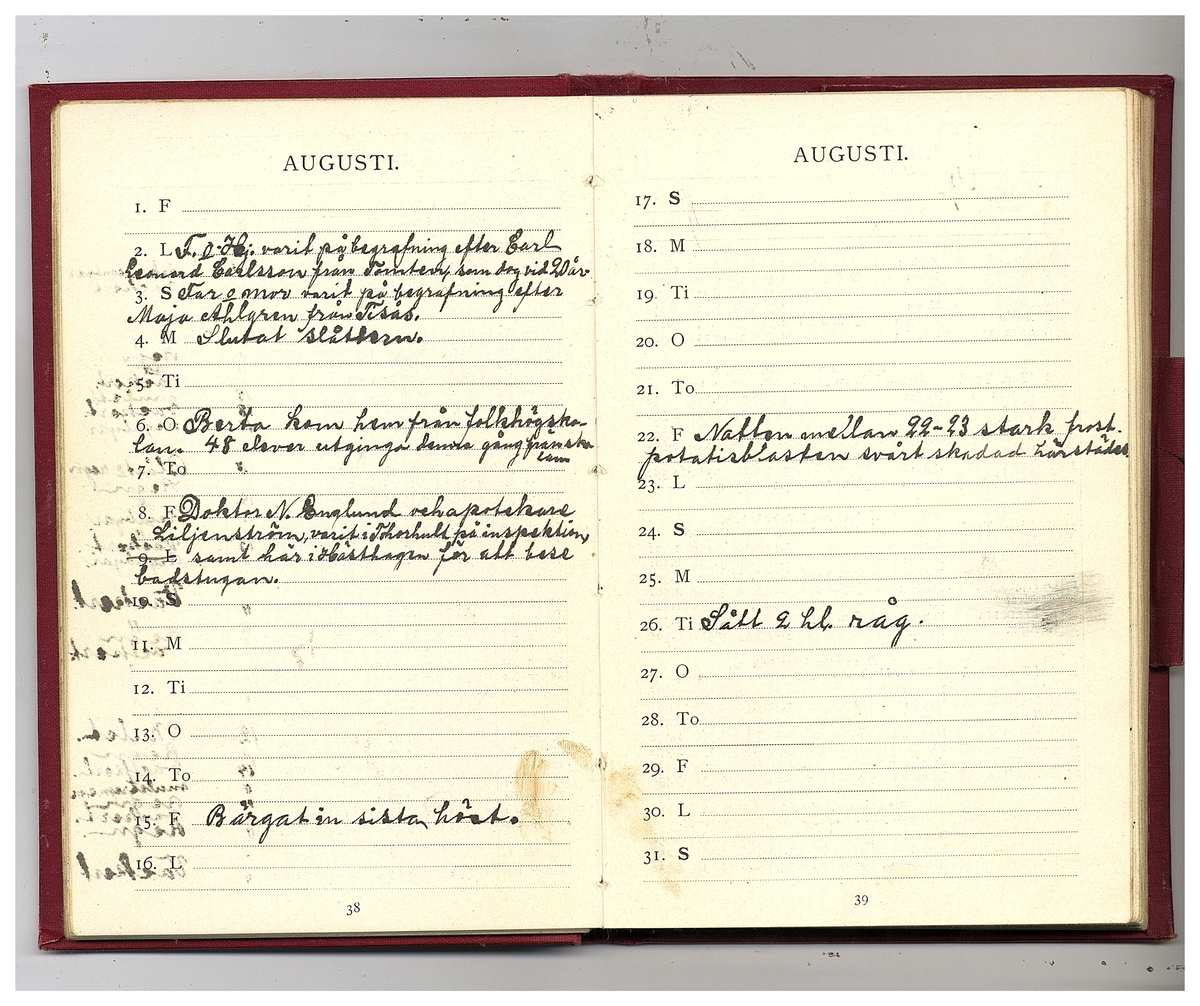 AUGUSTI.
1. F
2. L F. o. Hj. varit på begrafning efter Carl
Leonard Carlsson från Tomten, som dog vid 20 år
3. S Far o mor varit på begrafning efter
Maja Ahlgren från Tisås.
4. M Slutat slåttern.
5. Ti
6. O Berta kom hem från folkhögsko-
lan. 48 elever utgingo denna gång från sko-
lam
7. To
8. F Doktor N. Englund och apotekare
Liljenström, varit i Thorhult på inspektion,
9. L samt här i Hästhagen för att bese
badstugan.
10. S
11. M
12. Ti
13. O
14. To
15. F Bärgat in sista höet.
16. L
38
AUGUSTI.
17. S
18. M
19. Ti
20. O
21. To
22. F Natten mellan 22-23 stark frost.
potatisblasten svårt skadad härstädes
23. L
24. S
25. M
26. Ti Sått 2 hl. råg.
27. O
28. To
29. F
30. L
31. S
39